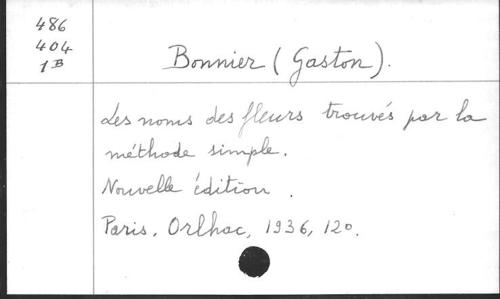 486
404
1B
Bonnier (Gaston).
Les noms des fleurs trouvés par la
méthode simple.
Nouvelle édition.
Paris, Orlhac, 1936, 12o.